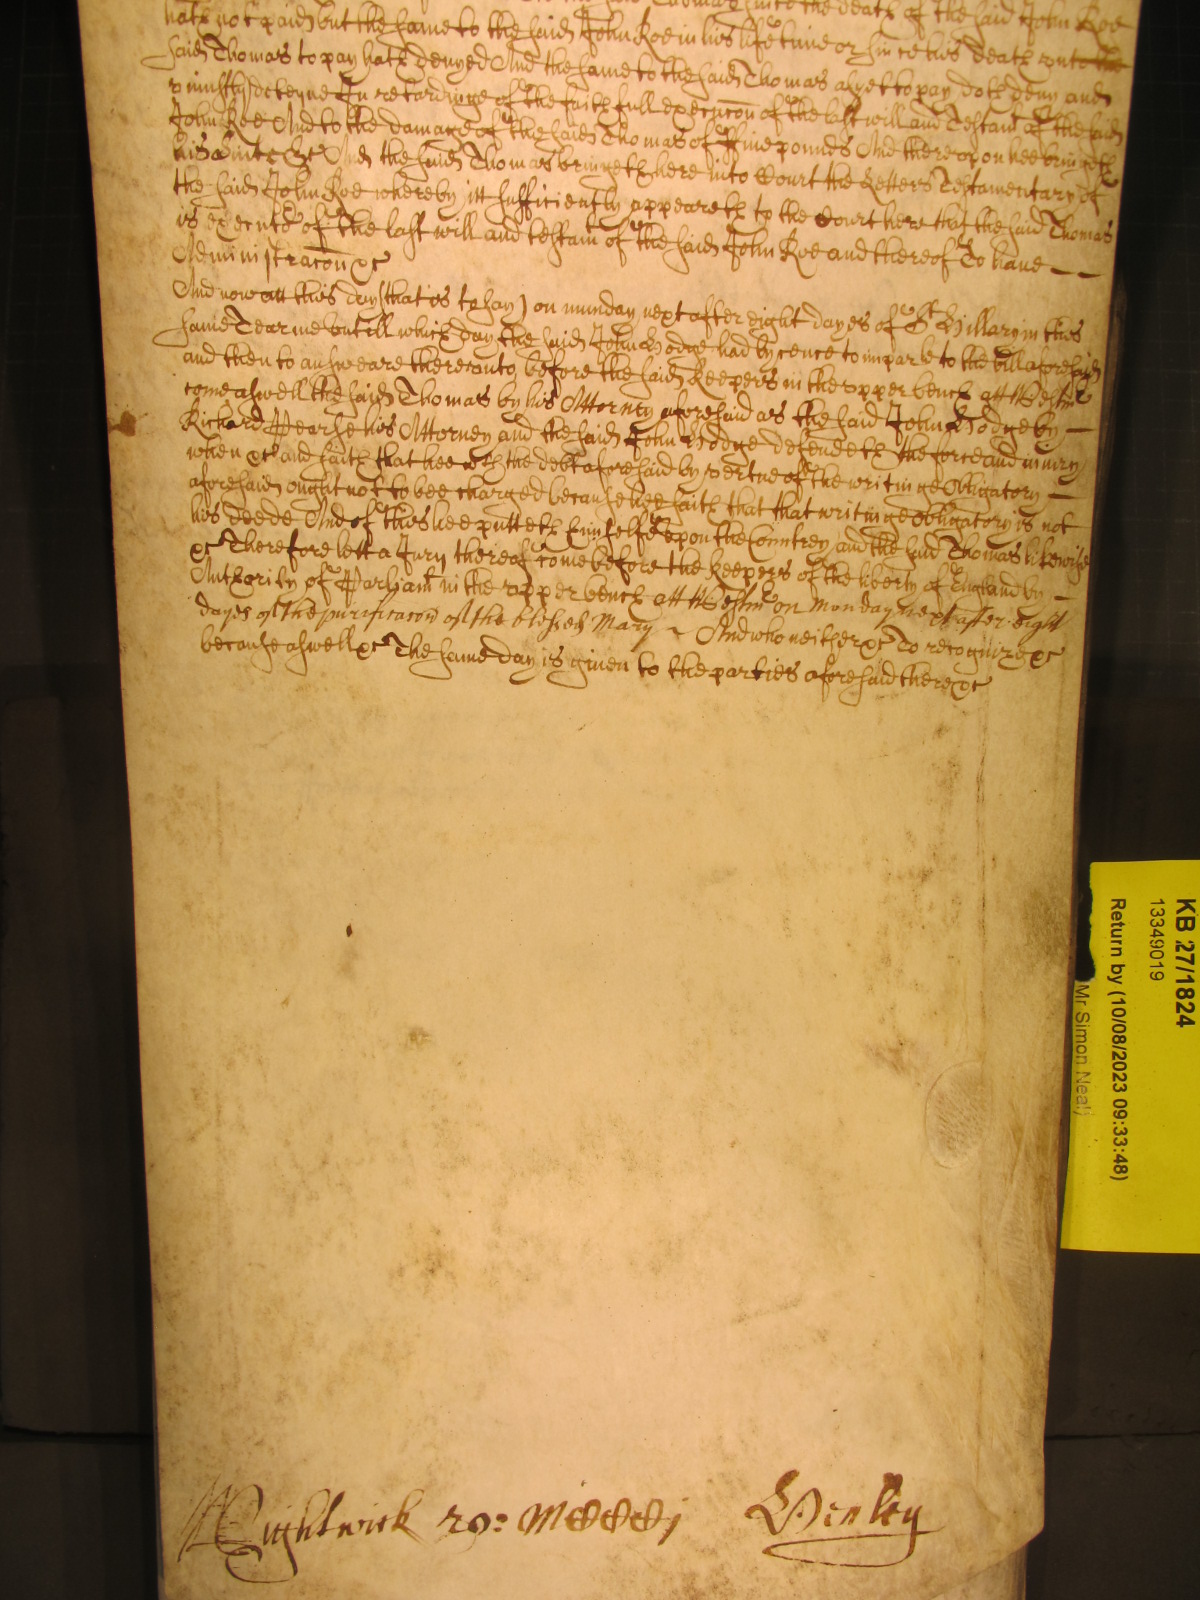 Thomas since the death of the said John Roe
hath not paid but the same to the said John Roe in his life time or since his death unto the
said Thomas to pay hath denyed And the same to the said Thomas as yet to pay doth deny and
uniustly deteyne In retardinge of the faithfull execucōn of the last will and Testamt of the said
John Roe And to the damage of the said Thomas of ffive pounds And thereupon hee bringeth
his suite &c And the said Thomas bringeth here into Court the Letters Testamentary of
the said John Roe whereby itt sufficiently appeareth to the Court here that the said Thomas
is executo<sup>r</sup> of the last will and testam<sup>t</sup> of the said John Roe and thereof To have
Administracōn &c
And now att this day (that is to say) on munday next after eight dayes of St Hillary in this
same Tearme untill which day the said John Hodge had lycence to imparle to the bill aforesaid
and then to answeare thereunto before the said Keepers in the upper bench att Westmr
come aswell the said Thomas by his Attorney aforesaid as the said John Hodge by
Richard Pearse his Attorney and the said John Hodge defendeth the force and iniury
when &c and saith that hee wth the debt aforesaid by vertue of the writinge obligatory
aforesaid ought not to bee charged because hee saith that that writinge obligatory is not
his deede And of this hee putteth himselfe upon the Countrey and the said Thomas likewise
&c Therefore lett a Jury thereof come before the Keepers of the liberty of England by
Authority of Parliamt in the upper bench att Westmr on Monday next after eight
dayes of the purificacōn of the blessed Mary And who neither &c To recognize &c
because aswell &c The same day is given to the parties aforesaid there &c
Wightwick Ro: Henley
KB 27/1824
13349019
Return by (10/08/2023 09:33:48)
Mr Simon Neal)